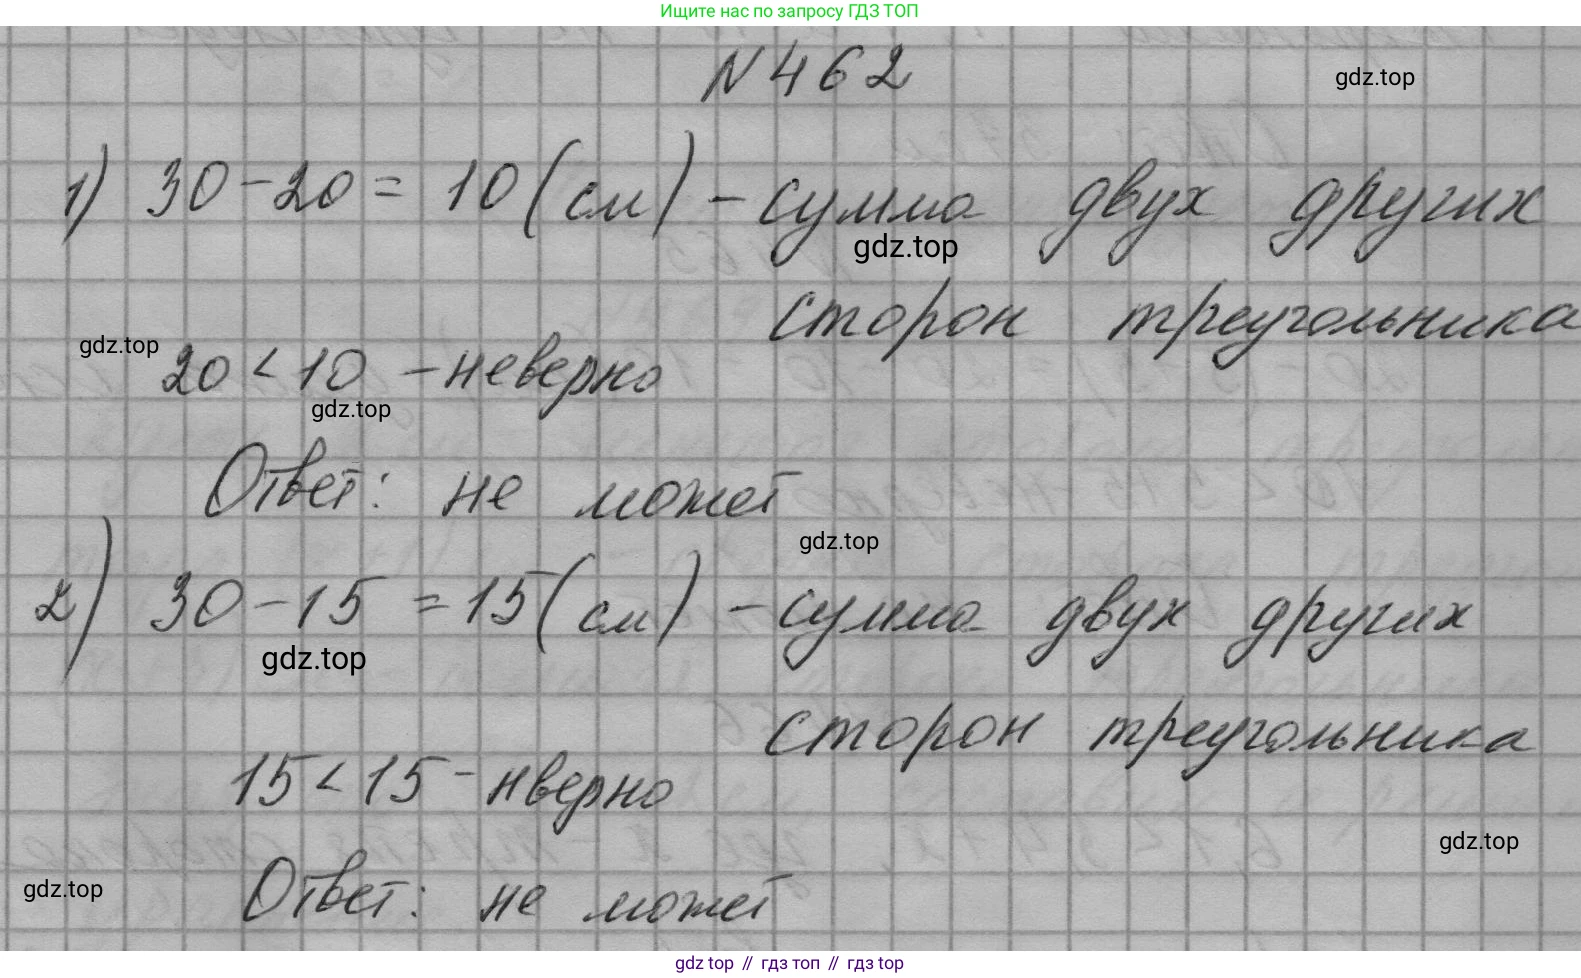 Ищите нас по запросу ГДЗ ТОП
N 462
gdz.top
1) 30-20= 10 (см) - сумма двух других
gdz.top
сторон треугольника
gdz.top
20 < 10 - неверно
gdz.top
Ответ: не может
gdz.top
2) 30-15 = 15 (см) - сумма двух других
gdz.top
сторон треугольника
15 < 15 - нверно
gdz.top
Ответ: не может
gdz.top
gdz top // гдз топ // гдз top